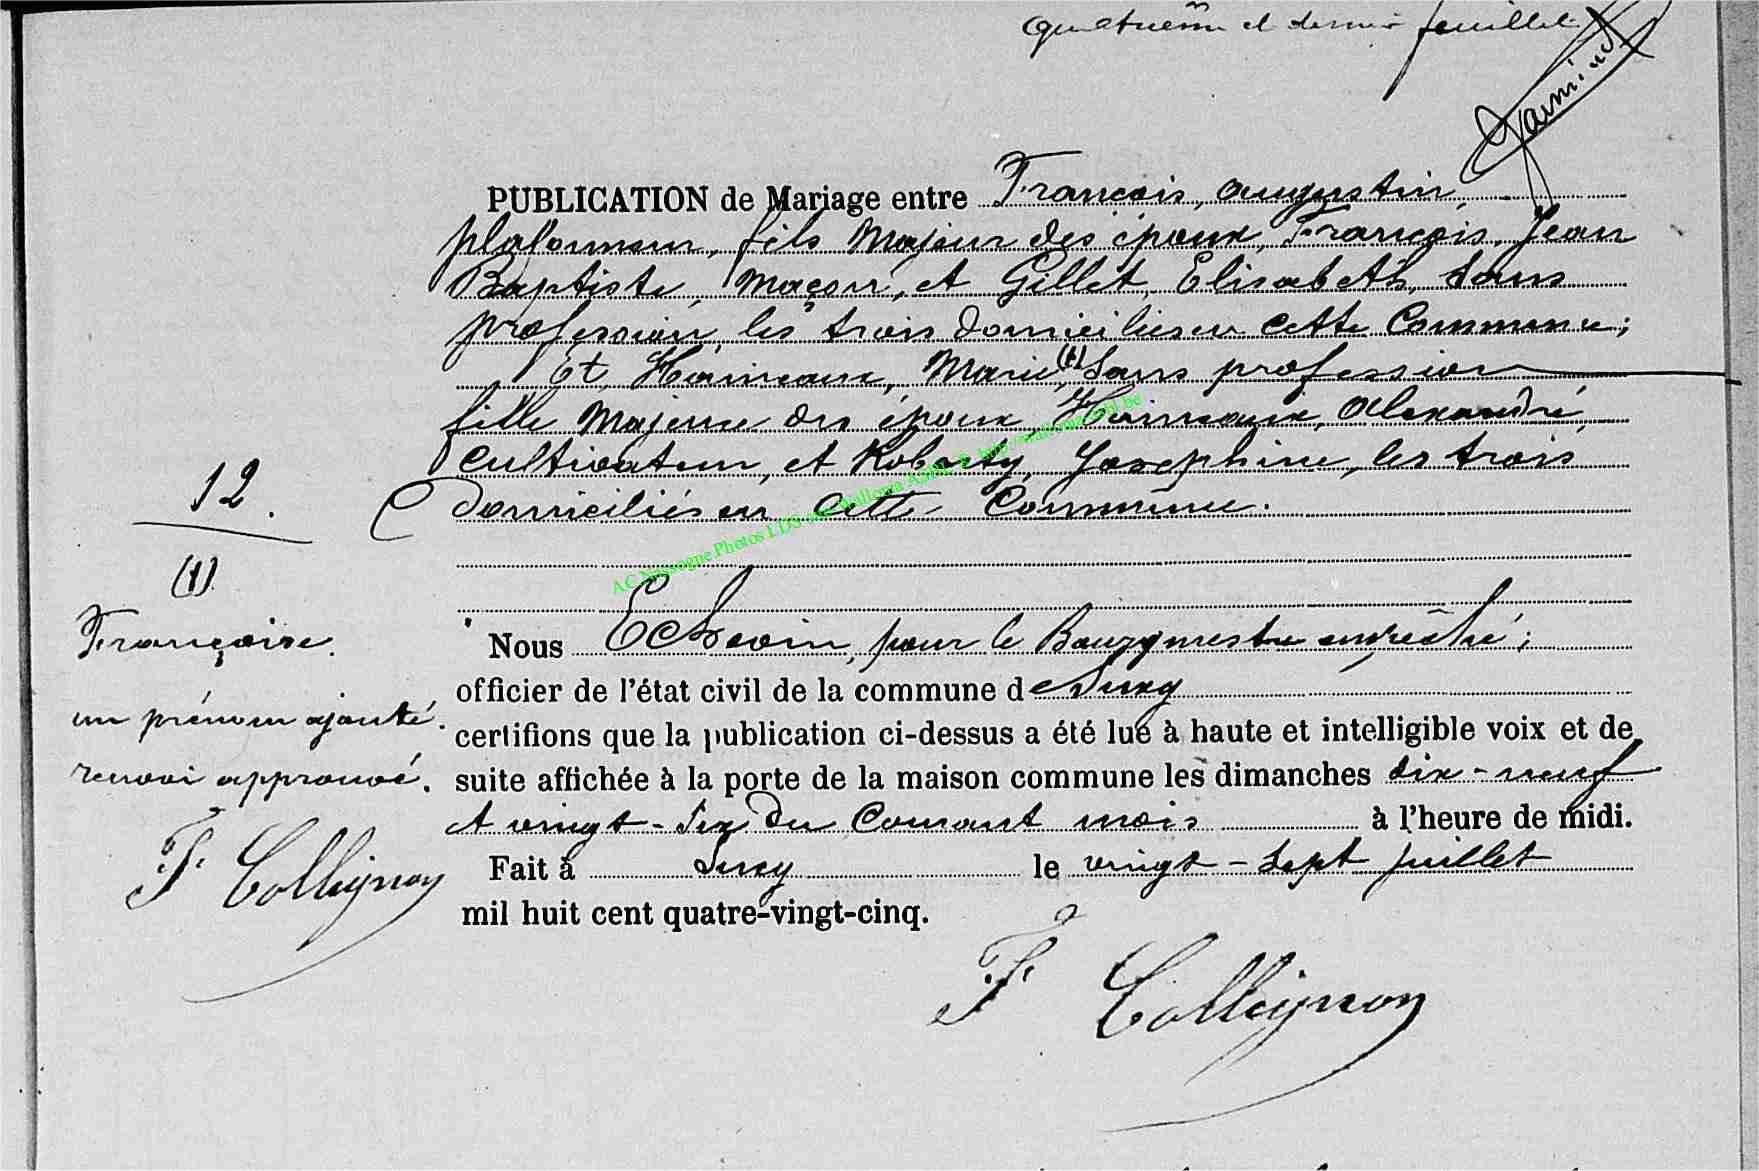 quatrième et dernier feuillet
PUBLICATION de Mariage entre François, Augustin,
plafonneur, fils Majeur des époux, François, Jean
Baptiste, Maçon, et Gillet, Elisabeth, sans
profession, les trois domiciliés en cette Commune;
Et, Hainaux, Marie, (1) Sans profession
fille Majeure des époux, Hainaux, Alexandre,
Cultivateur, et Roberty, Josephine, les trois
12.
domiciliés en cette Commune.
AC Nassogne Photos LDS
(1)
Françoise.
un prénom ajouté.
renvoi approuvé.
F. Collignon
Nous Echevin, pour le Bourgmestre empêché;
officier de l'état civil de la commune de Suxy
certifions que la publication ci-dessus a été lue à haute et intelligible voix et de
suite affichée à la porte de la maison commune les dimanches dix-neuf
et vingt-six du Courant mois à l'heure de midi.
Fait à Suxy le vingt-sept juillet
mil huit cent quatre-vingt-cinq.
F. Collignon